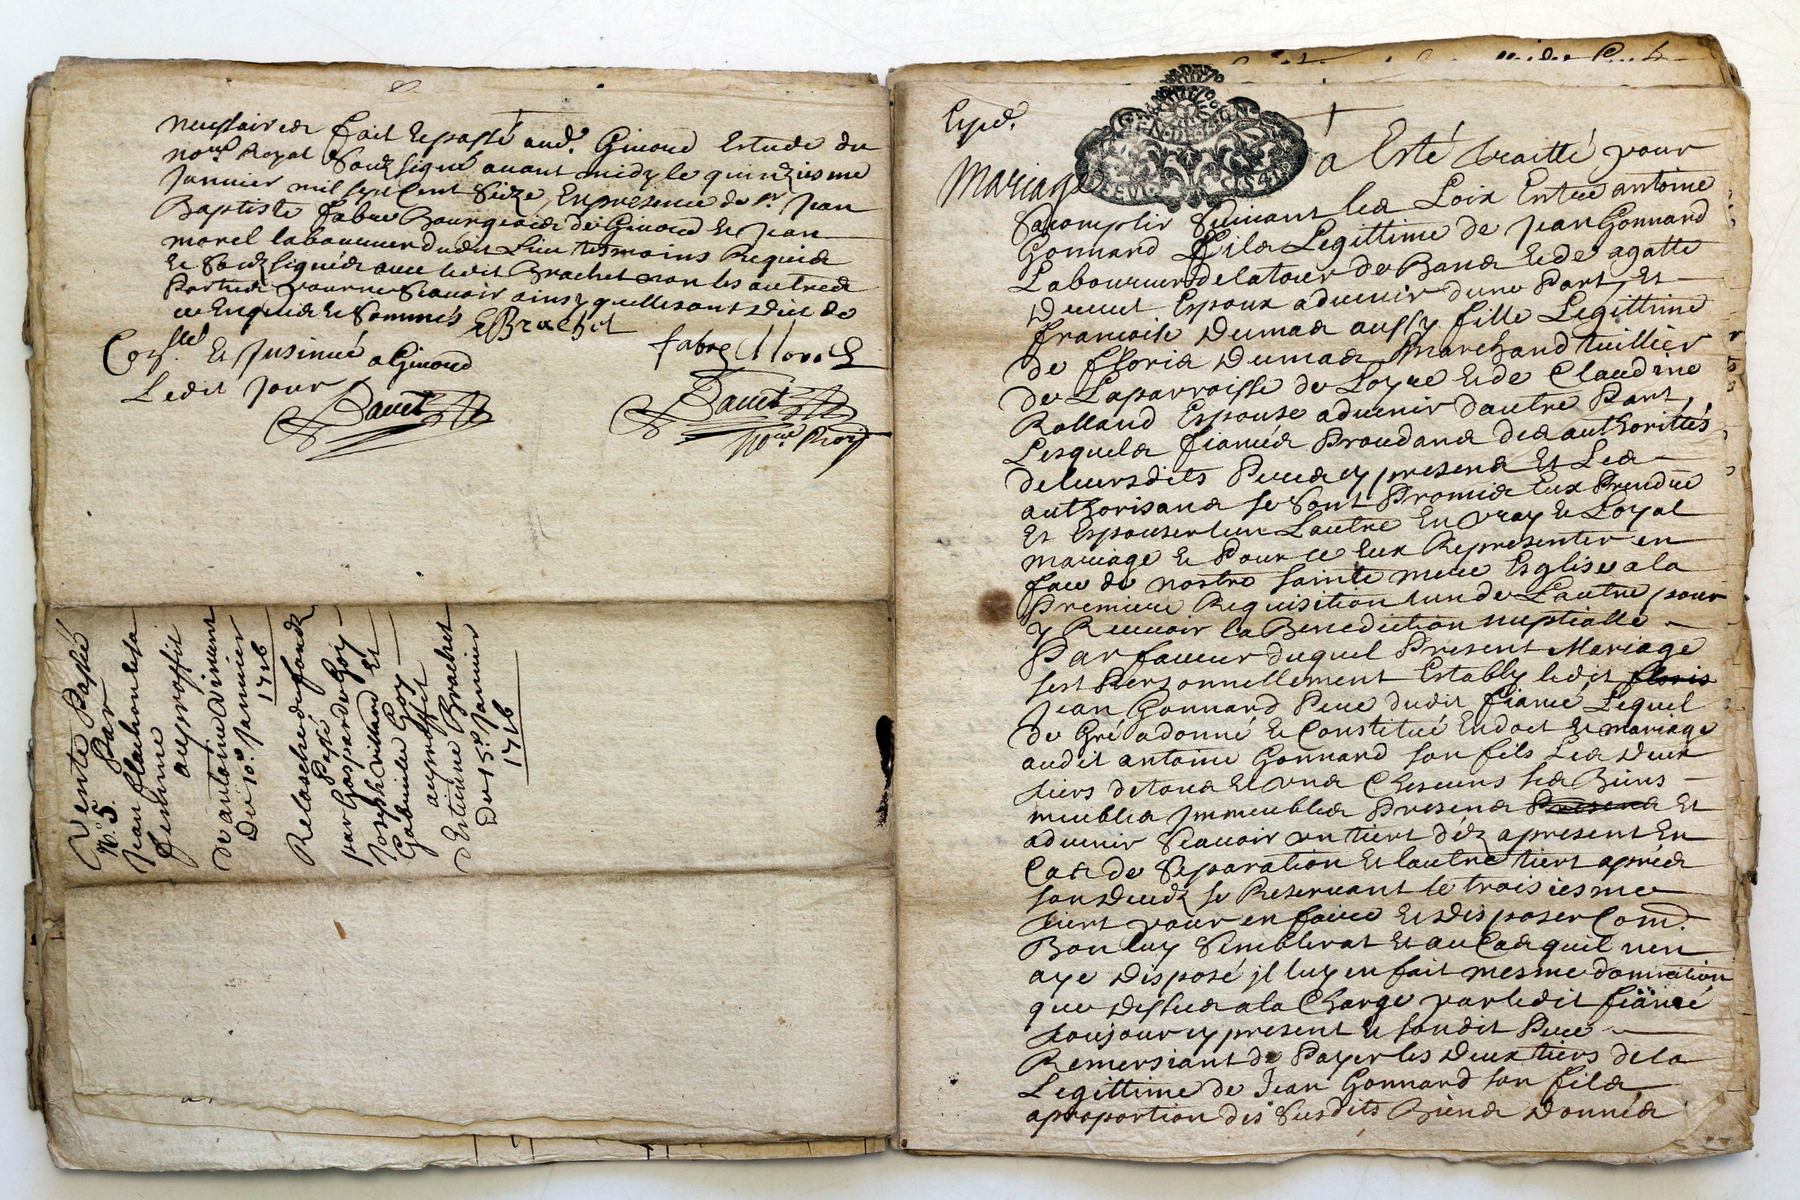 neussaires fait et passé aud. Givord Estude du
no.re Royal Soubsigné avant midy le quinziesme
Janvier mil sept Cent Seize, En presence de sr Jean
Baptiste fabre Bourgeois de Givord Et Jean
morel laboureur dudit Lieu tesmoins Requis
Et Soubsignés avec ledit Brachet non les autres
Parties pour ne Scavoir ainsy quelles ont dict de
ce Enquis Et Sommés EBrachet
fabre Morel
Con.llé Et Jnsinué a Givord
Ledit Jour
no.re Royal
Vente Passé
N.o 5. Par
Jean flachon Et sa
femme
au proffit
de antoine vincent
Du 10.e Janvier
1716
Relasche de fonds
Passé
par Gaspard Goy
Joseph villard Et
Gabrielle Goy
au proffit
d'Estienne Brachet
Du 15.e Janvier
1716
Exped.
Mariage
GEN DE LYON
a Esté traitté pour
Sacomplir Suivant les Loix Entre antoine
Gonnard fils Legittime de Jean Gonnard
Laboureur de la tour de Bans Et de agatte
Espoux advenir dune Part, Et
francoise Dumas aussy fille Legittime
de floris Dumas Marchand tuillier
de Laparroisse de Loyre Et de Claudine
Rolland Espouse advenir dautre Part,
Lesquels fiancés Proudans des authorittés
de leursdits Peres cy presens Et Les
authorisans se Sont Promis Eux Prendre
Et Espouser lun Lautre En vray Et Loyal
mariage Et Pour ce Eux Representer en
face de nostre Sainte mere Esglise a la
Premiere Requisition lun de Lautre pour
y Recevoir la Benediction nuptialle
Par faveur duquel Present Mariage
sest Personnellement Estably ledit floris
Jean Gonnard Pere dudit fiancé Lequel
de Gré a donné Et Constitué En dot Et mariage
audit antoine Gonnard son fils Les Deux
tiers de tous Et uns Chescuns ses Biens
meubles Jmmeubles Presens Presens Et
advenir Scavoir un tiers déz apresent En
Cas de Separation Et lautre tiers aprés
son Decedz se Reservant le troisiesme
tiers pour en faire Et Disposer Com.e
Bon luy Semblerat Et au Cas quil nen
aye Disposé jl luy en fait mesme donnation
que dessus a la Charge par ledit fiancé
toujour cy present Et sondit Pere
Remersiant de Payer les Deux tiers de la
Legittime de Jean Gonnard son fils
a proportion des Susdits Biens Donnés